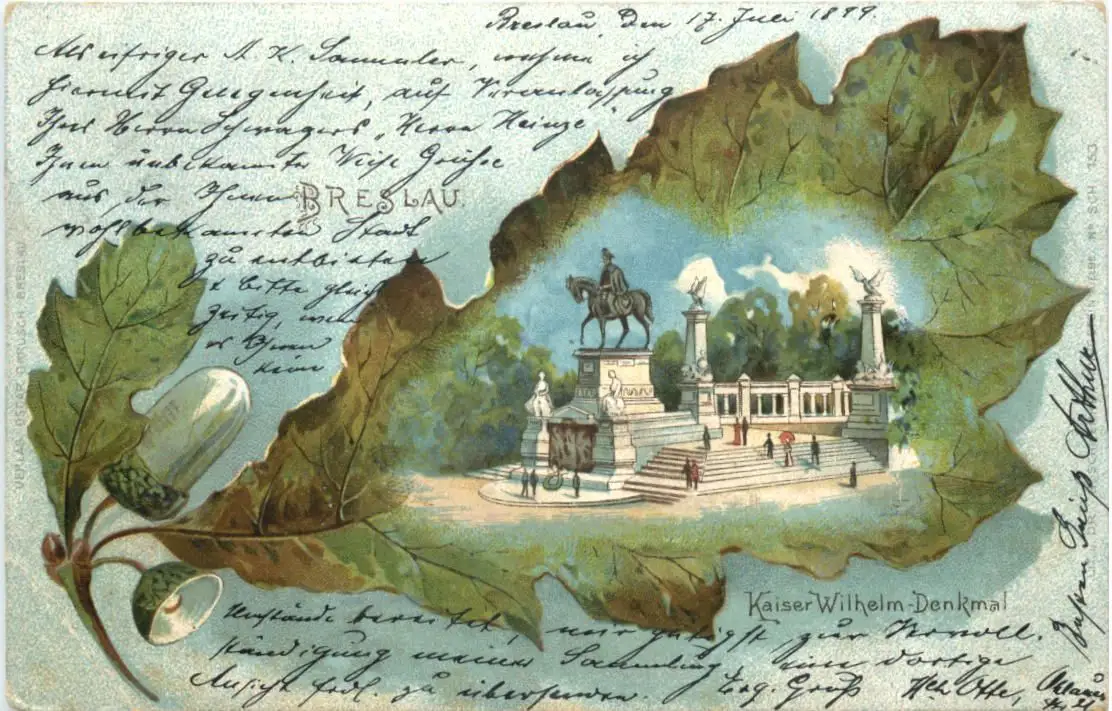 Breslau, den 17. Juli 1899.
Als eifriger A. K. Sammler, nehme ich
hiermit Gelegenheit, auf Veranlassung
Ihres Herrn Schwagers „Herrn Heinze"
Ihnen unbekannter Weise Grüße
aus der Ihnen
BRESLAU.
wohlbekannten Stadt
zu entbieten
& bitte gleich
zeitig, wenn
es Ihnen
keine
Kaiser Wilhelm-Denkmal
Umstände bereitet, mir gütigst zur Vervoll-
ständigung meiner Sammlung eine dortige
Ansicht frdl. zu übersenden. Erg. Gruß Hch Otte,